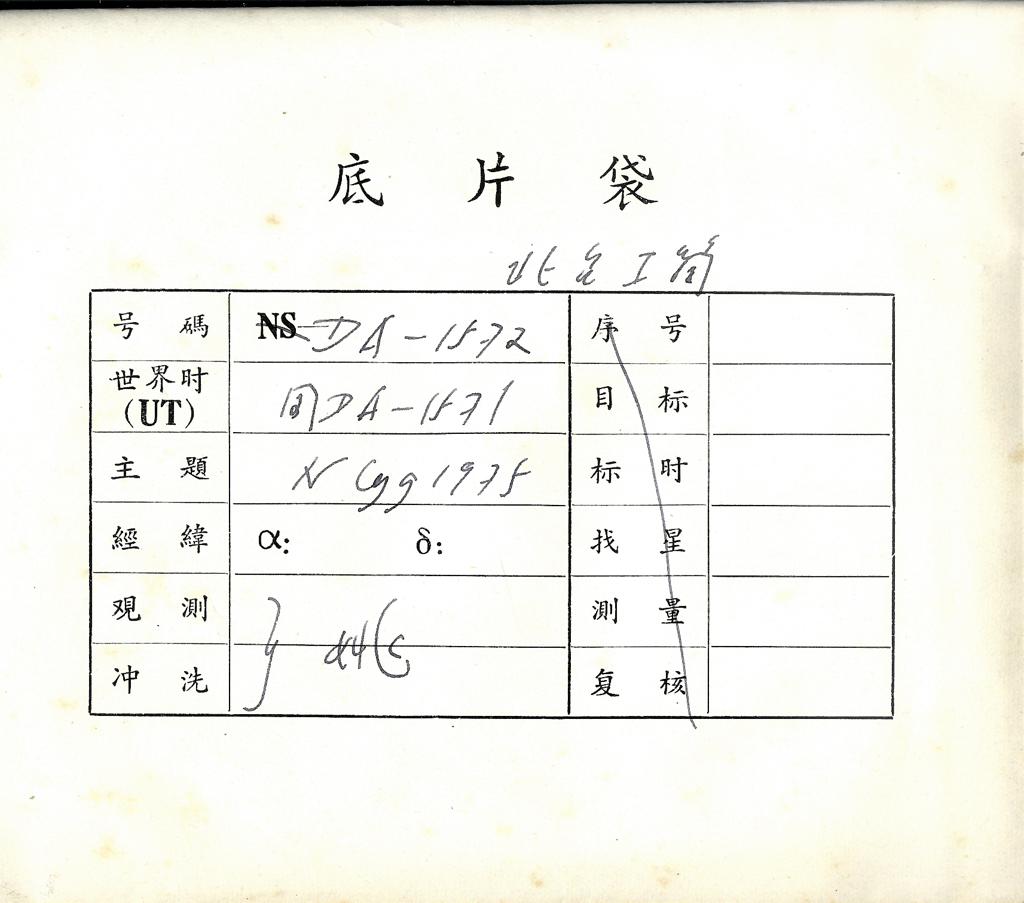 底 片 袋
号 碼 NS DA-1572 序 号
世界时 (UT) 同DA-1571 目 标
主 題 N Cyg 1975 标 时
經 緯 α: δ: 找 星
观 測 測 量
冲 洗 复 核